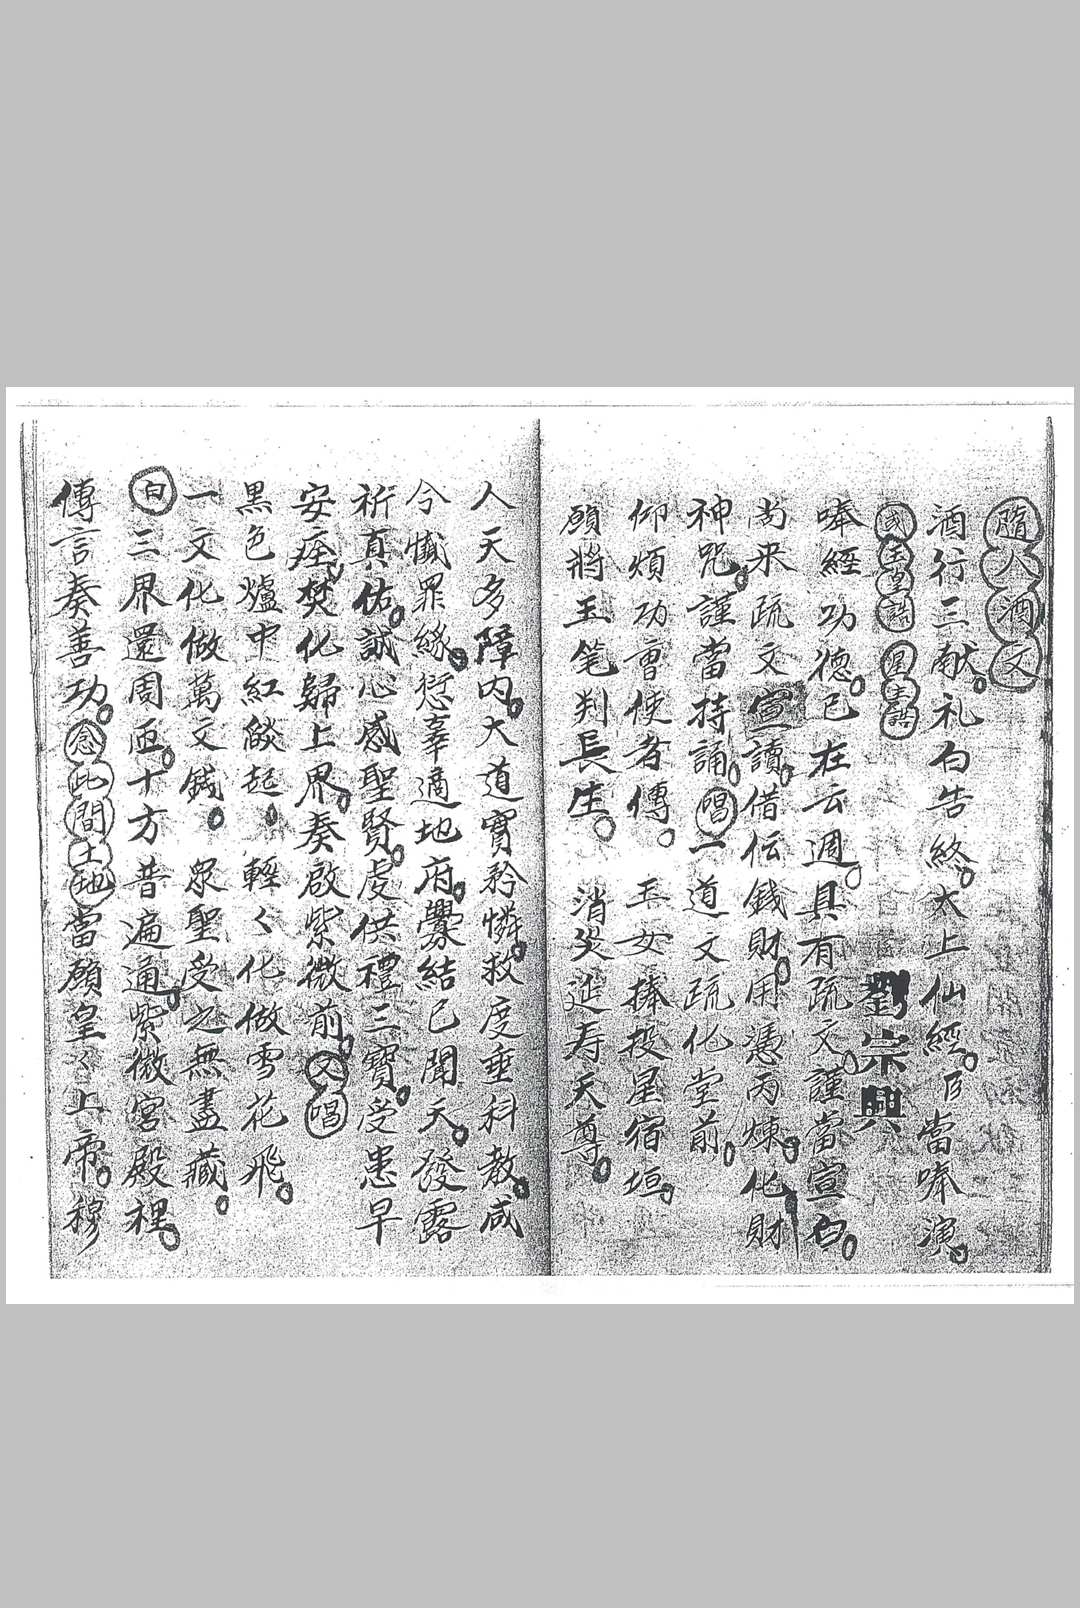 隨人酒文
酒行三献。礼白告終。太上仙經。臣當奉演。
玉皇誥 星主誥
奉經功德。已在云週。具有疏文。謹當宣白。
劉宗興
尚来疏文宣讀。借伝錢財。用憑丙煉。化財
神咒。謹當持誦。唱一道文疏化堂前。
仰煩功曹使者傳。玉女捧投星宿垣。
願將玉笔判長生。消災延寿天尊。
人天多障内。大道寳矜憐。救度垂科教。咸
令懺罪緣。愆辜適地府。釁結已聞天。發露
祈真佑。誠心感聖賢。虔供禮三寶。受患早
安痊。焚化歸上界。奏啟紫微前。又唱
黑色爐中紅燄起。輕々化做雪花飛。
一文化做萬文錢。眾聖受之無盡藏。
白三界還周匝。十方普遍通。紫微宮殿裡。
傳言奏善功。念此間土地當願皇々上帝。穆